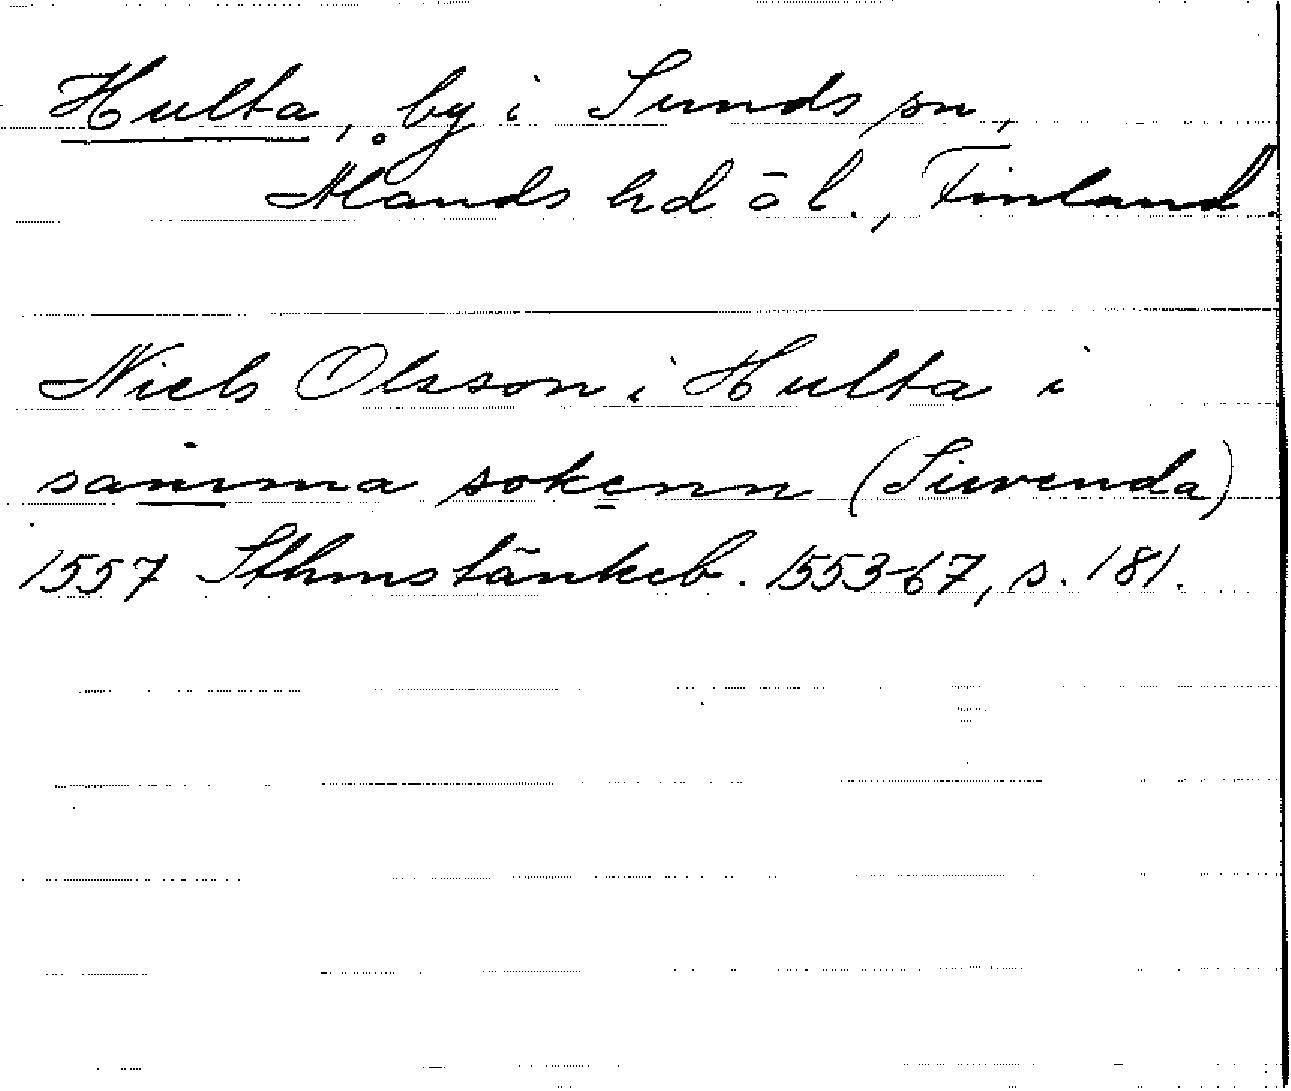 Hulta, by i Sunds sn,
Ålands hd o l., Finland.
Niels Olsson i Hulta i
samma sokenn (Siwenda)
1557 Sthms tänkeb. 1553-67, s. 181.